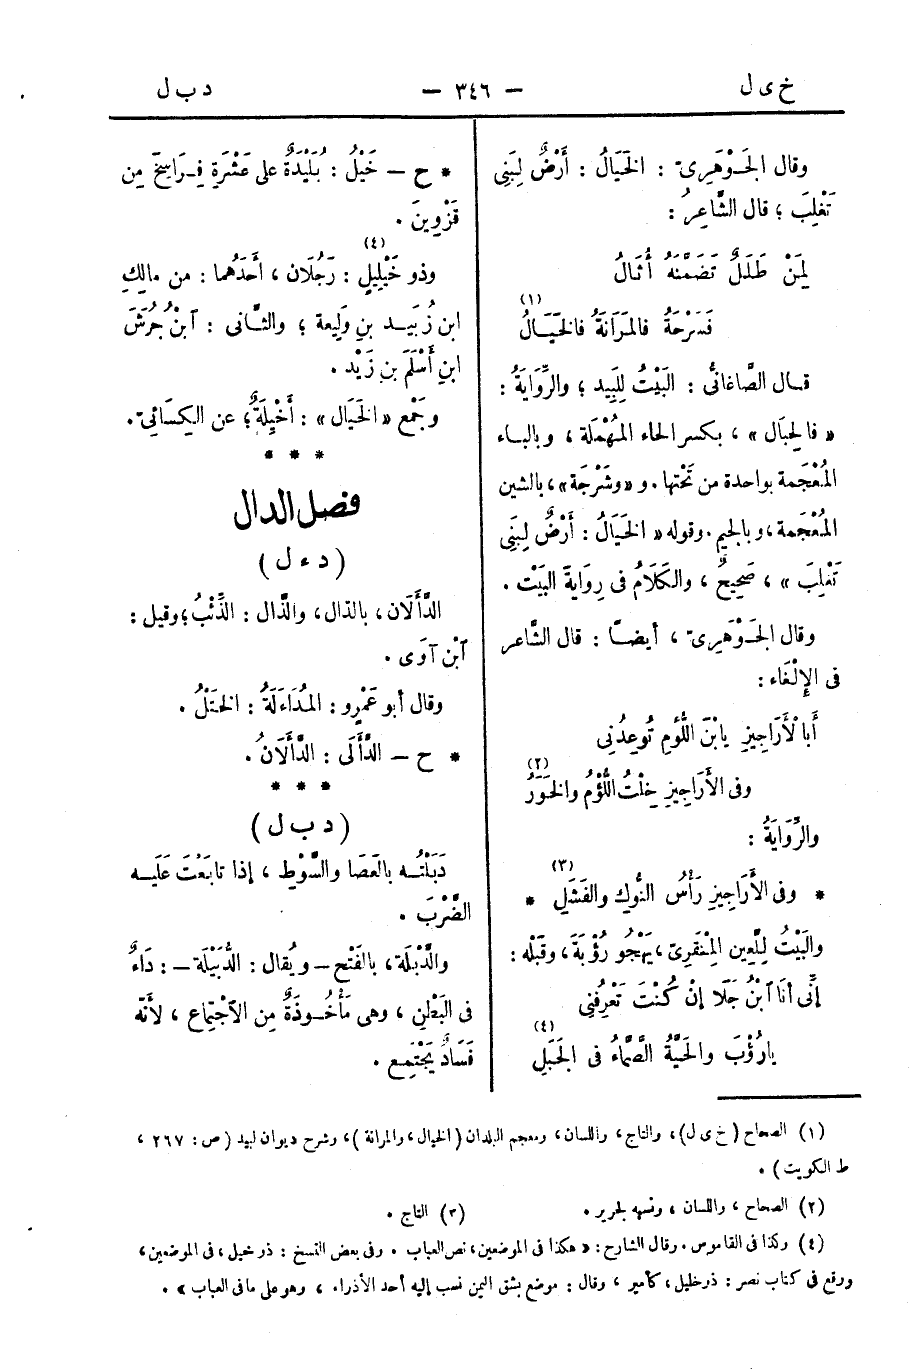 خ ى ل
— ٣٤٦ —
د ب ل
وقال الجَوْهَرِىّ : الخَيَالُ : أَرْضٌ لِبَنِى
تَغْلِبَ ؛ قال الشَّاعِرُ :
لِمَنْ طَلَلٌ تَضَمَّنَهُ أُثَالُ
فَسَرْحَةُ فالمَرَانَةُ فالخَيَالُ (١)
قال الصَّاغانىُّ : البَيْتُ لِلَبِيد ؛ والرِّوَايَةُ :
« فالحِبَال » ، بكسر الحاء المُهْمَلة ، وبالباء
المُعْجَمة بواحدة من تَحْتها . و « وشَرْجَة » ، بالشين
المُعْجَمة ، وبالجيم . وقوله « الخَيَالُ : أَرْضٌ لِبَنِى
تَغْلِبَ » ، صَحِيحٌ ، والكَلَامُ فى رِوَايَة البَيْت .
وقال الجَوْهَرِىّ ، أيضًا : قال الشَّاعر
فى الإِلْغَاء :
أَبا لْأَرَاجِيزِ يابْنَ اللُّؤمِ تُوعِدُنِى
وفى الأَرَاجِيزِ خِلْتُ اللُّؤْمُ والخَوَرُ (٢)
والرِّوَايَةُ :
* وفى الأَرَاجِيزِ رَأْسُ النُّوكِ والفَشَلِ (٣) *
والبَيْتُ لِلَّعِين المِنْقَرِىّ ، يَهْجُو رُؤْبَةَ ، وقَبْلَه :
إِنِّى أنَا ٱبْنُ جَلَا إنْ كُنْتَ تَعْرِفُنِى
يارُؤْبَ والحَيَّةُ الصَّمَّاءُ فى الجَبَلِ (٤)
* ح — خَيْلُ : بُلَيْدَةٌ على عَشْرَةِ فَرَاسِخَ مِن
قَزْوِينَ .
وذو خَيْلِيلٍ (٤) : رَجُلان ، أَحَدُهُما : من مالِكِ
ابن زُبَيد بنِ وَلِيعة ؛ والثَّانى : ٱبنْ جُرَشَ
ابنِ أَسْلَمَ بنِ زَيْد .
وجَمْع « الخَيَال » : أَخْيِلَةٌ ؛ عن الكِسَائىّ .
* * *
فصل الدال
( د ء ل )
الدَّأَلَان ، بالدال ، والذَّال : الذِّئْبُ ؛ وقيل :
ٱبْن آوَى .
وقال أبو عَمْرٍو : المُدَاءَلَةُ : الخَتْلُ .
* ح — الدَّأَلَى : الدَّأَلَانُ .
* * *
( د ب ل )
دَبَلْتُه بالعَصَا والسَّوْطِ ، إذا تابَعْتَ عَلَيه
الضَّرْبَ .
والدَّبْلَة ، بالفَتْح – ويُقال : الدُّبَيْلَة – : دَاءٌ
فى البَطْنِ ، وهى مَأْخُوذَةٌ مِن الٱجْتِماع ، لأَنّه
فَسَادٌ يَجْتَمِع .
(١) الصحاح ( خ ى ل ) ، والتاج ، واللسان ، ومعجم البلدان ( الخيال ، والمرانة ) ، وشرح ديوان لبيد ( ص : ٢٦٧ ،
ط الكويت ) .
(٢) الصحاح ، واللسان ، ونسبه لجرير .
(٣) التاج .
(٤) وكذا فى القاموس . وقال الشارح : « هكذا فى الموضعين ، نص العباب . وفى بعض النسخ : ذر خيل ، فى الموضعين ،
ووقع فى كتاب نصر : ذر خليل ، كأمير ، وقال : موضع بشق اليمن نسب إليه أحد الأذراء ، وهو على ما فى العباب » .